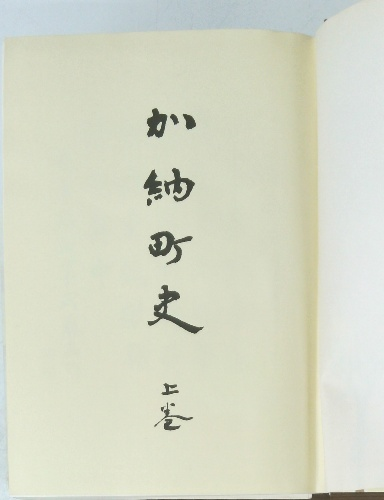 加納町史
上巻